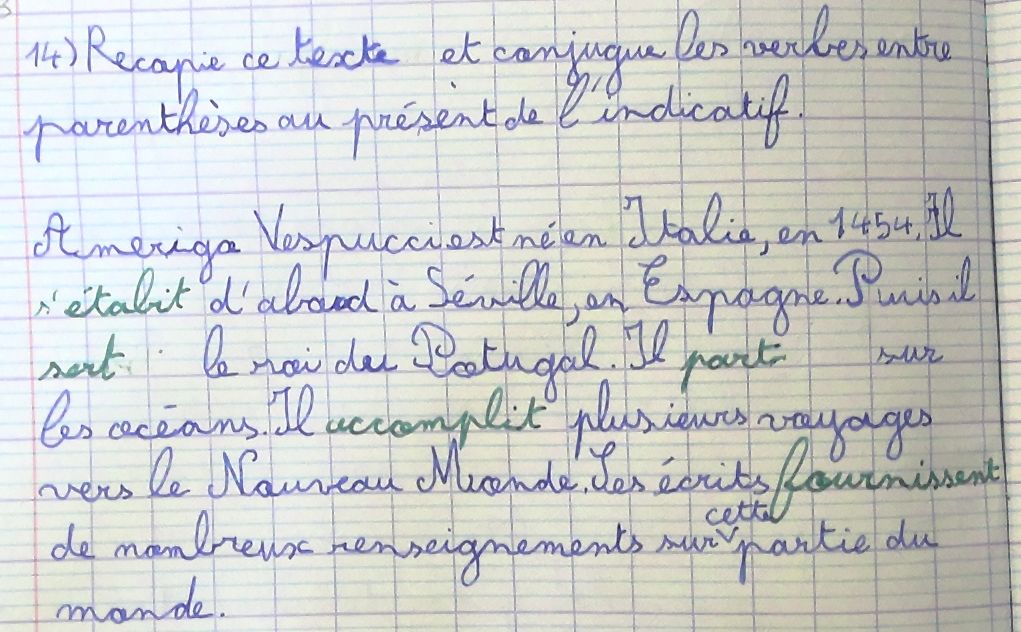 14) Recopie ce texte et conjugue les verbes entre
parenthèses au présent de l'indicatif.
Amerigo Vespucci est né en Italie, en 1454. Il
s'établit d'abord à Séville, en Espagne. Puis il
sert le roi du Potugal. Il part sur
les océans. Il accomplit plusieurs voyages
vers le Nouveau Monde. Ses écrits fournissent
cette
de nombreux renseignements sur partie du
monde.